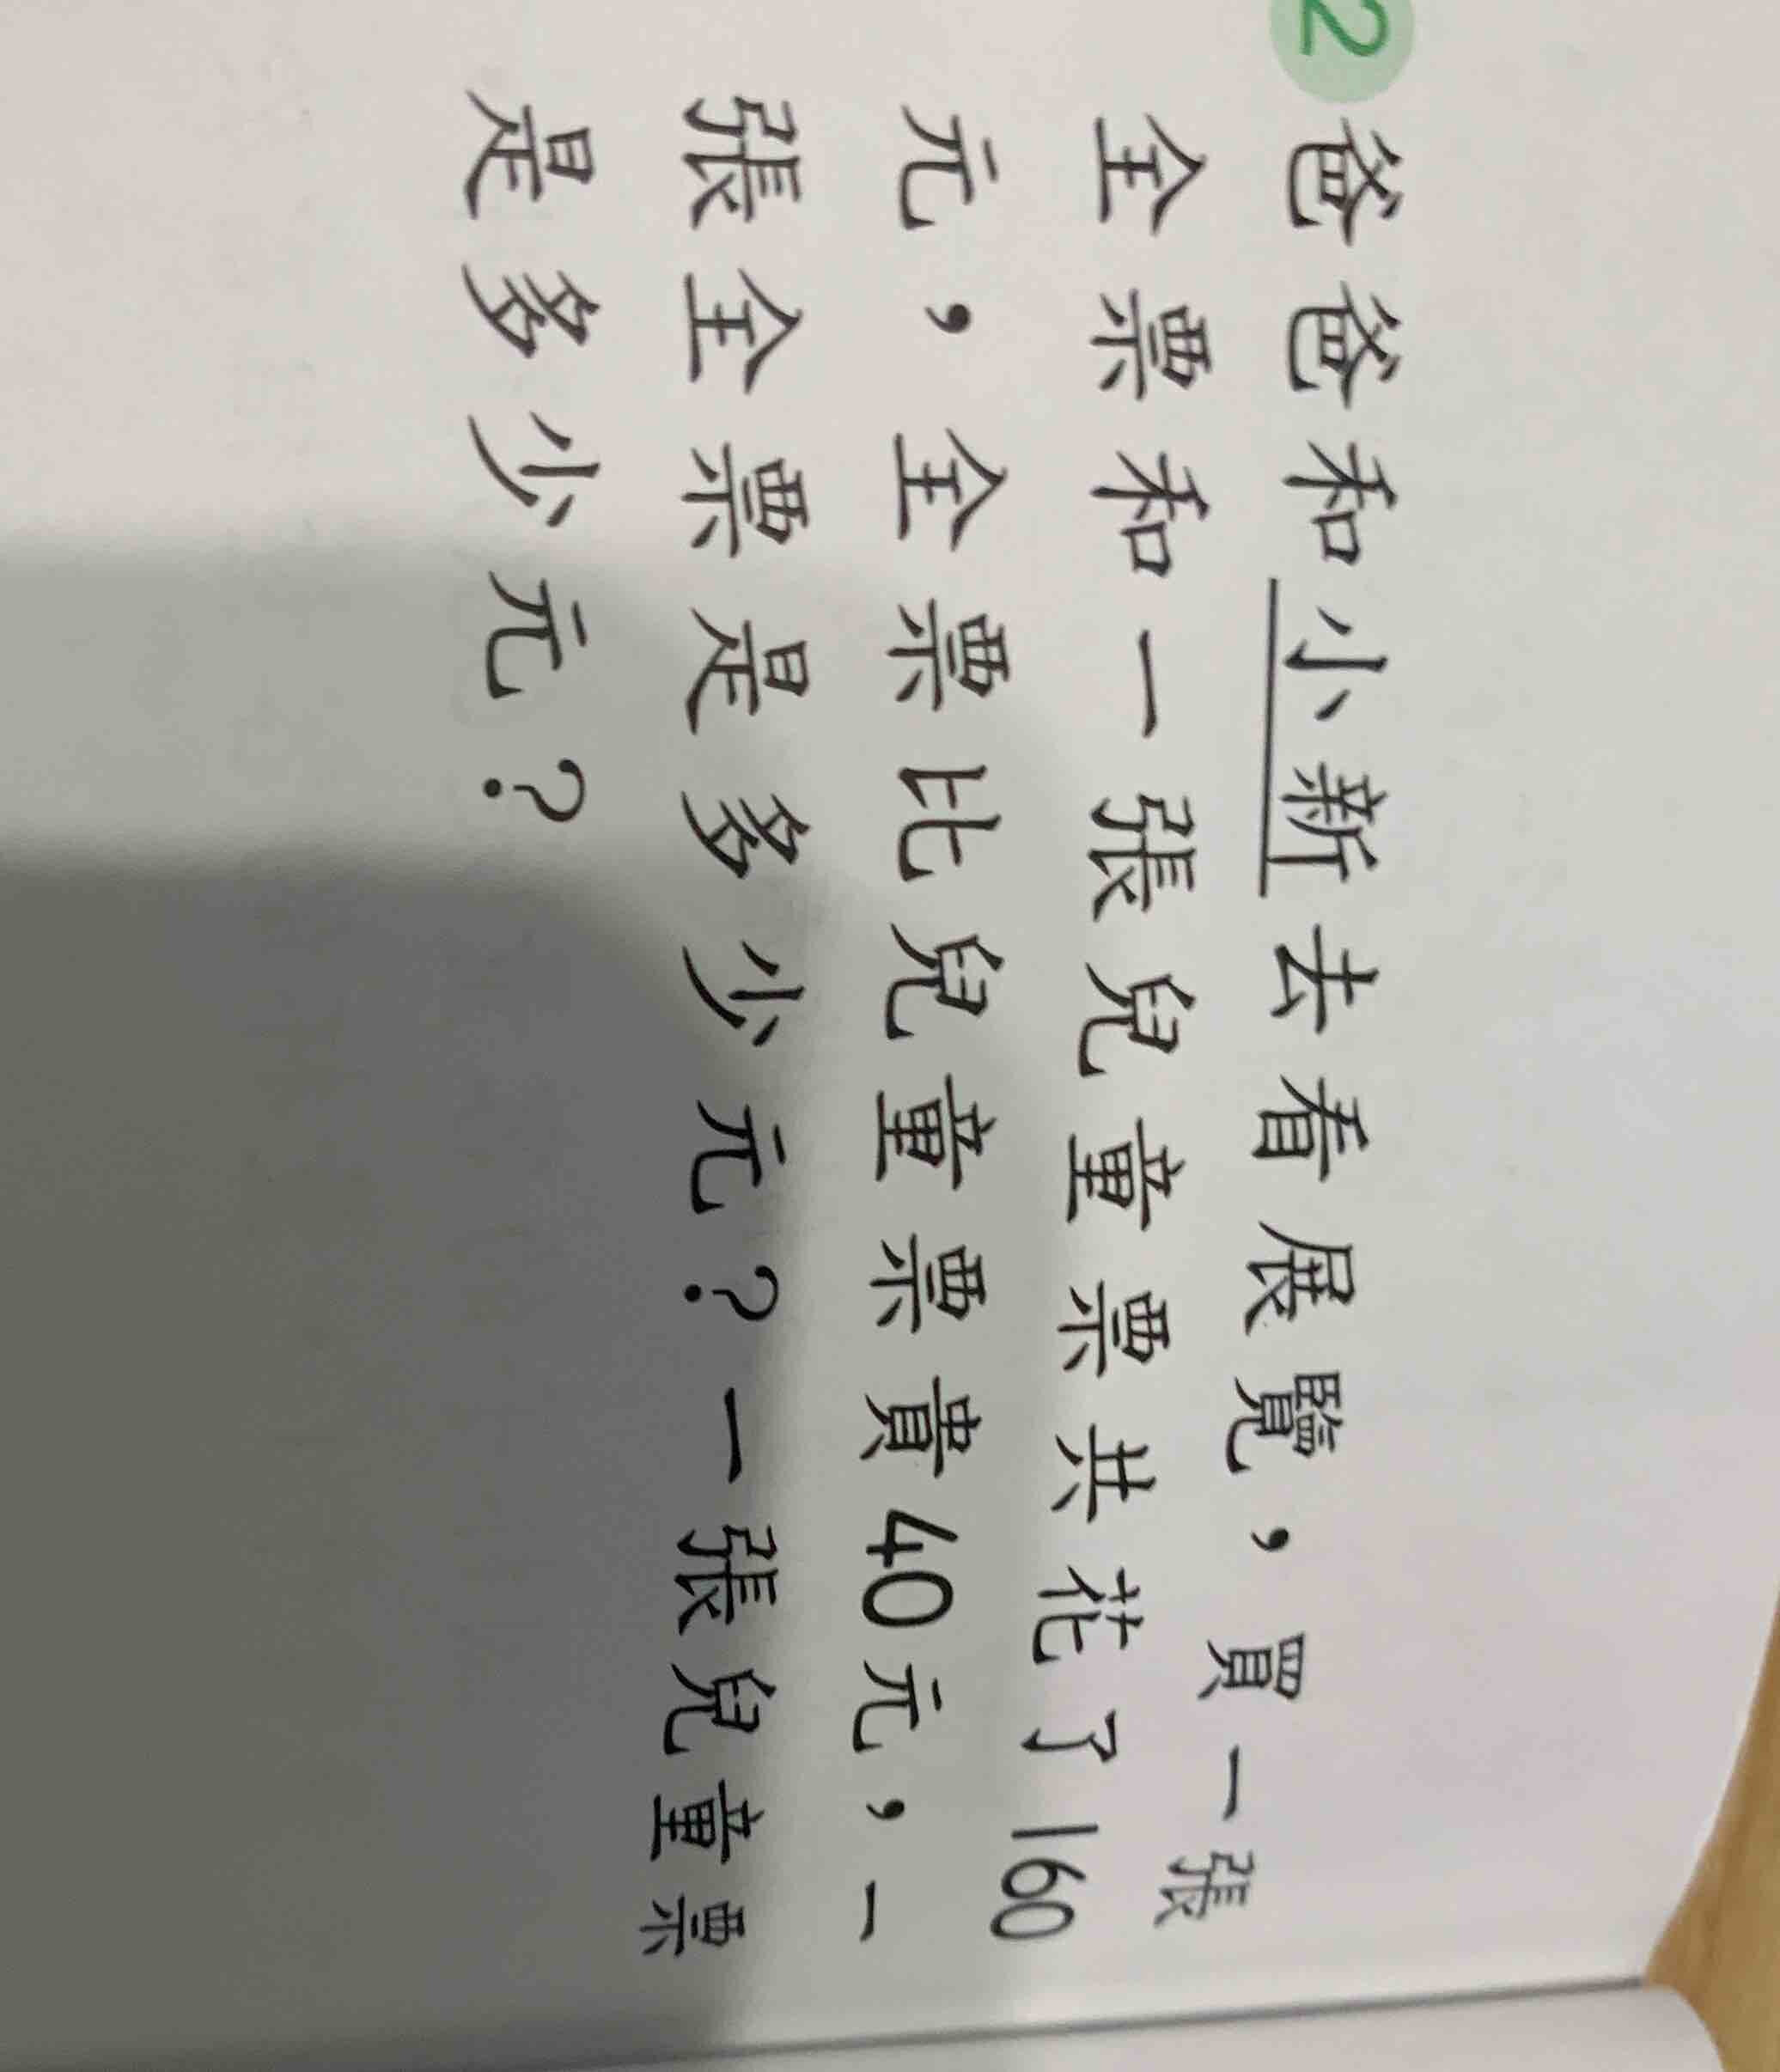 2 爸爸和小新去看展覽，買一張
全票和一張兒童票共花了160
元，全票比兒童票貴40元，一
張全票是多少元？一張兒童票
是多少元？